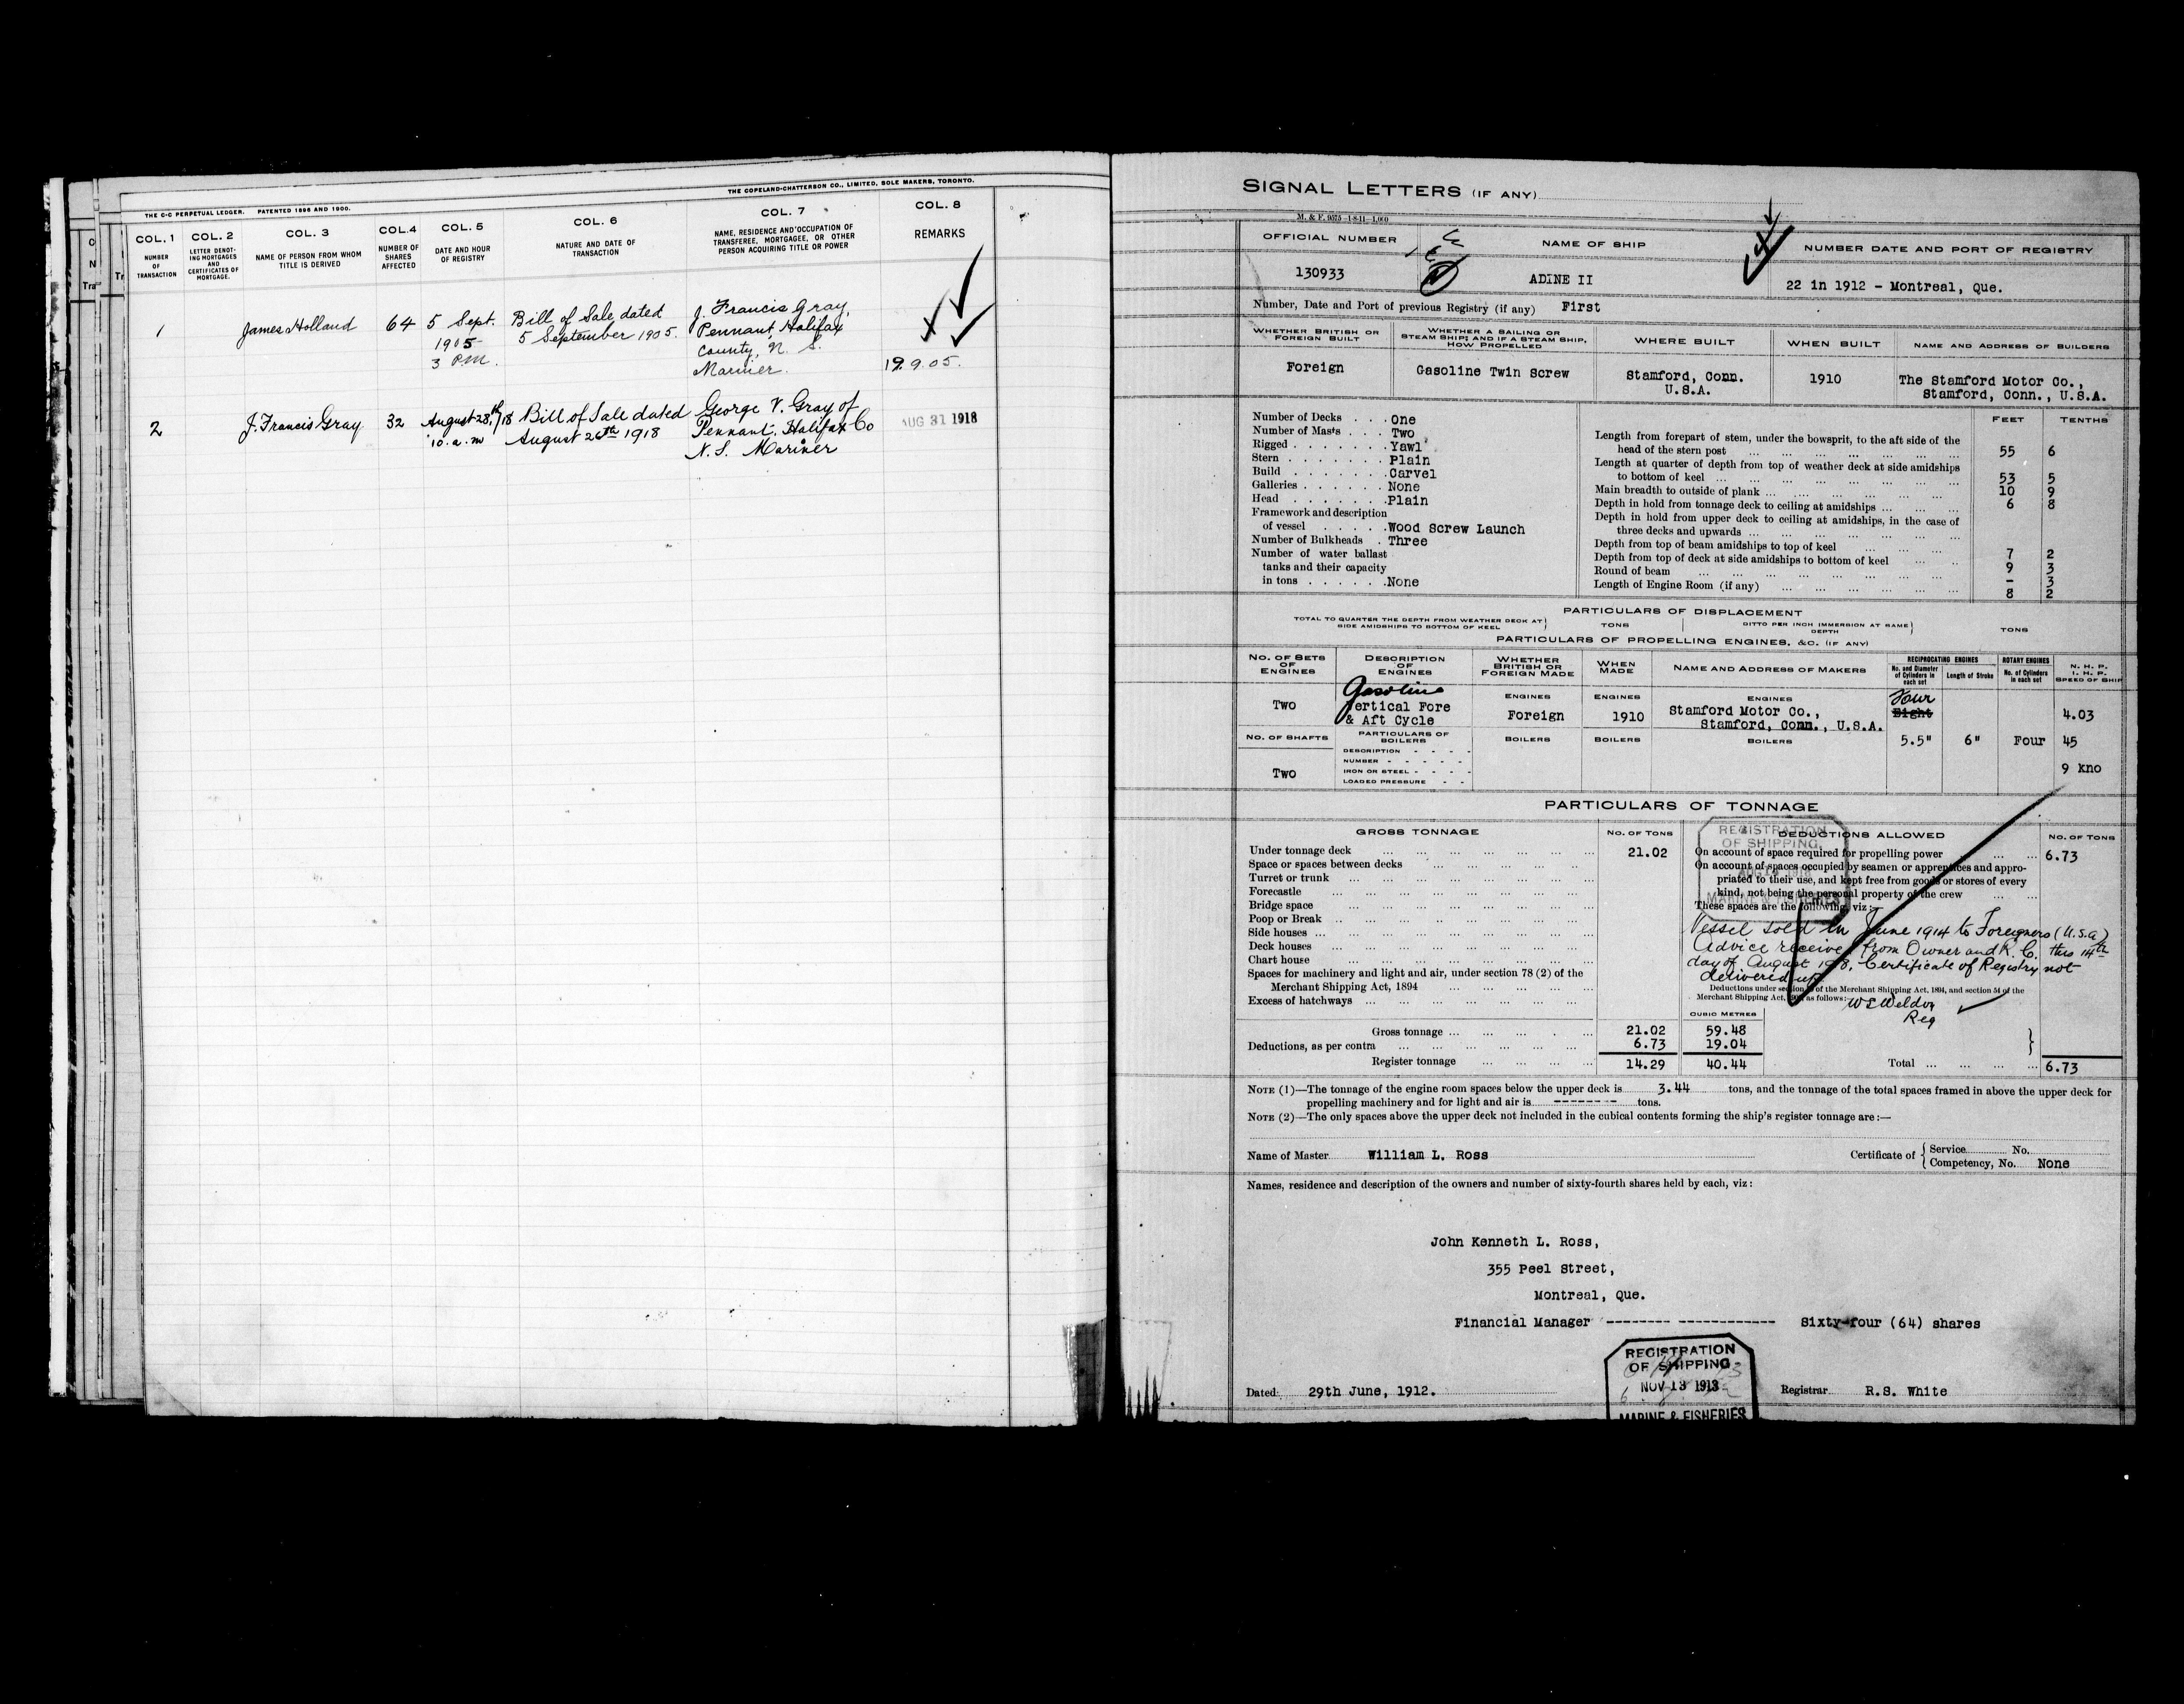 THE C-C PERPETUAL LEDGER. PATENTED 1898 AND 1900. THE COPELAND-CHATTERSON CO., LIMITED, SOLE MAKERS, TORONTO.
COL. 1 COL. 2 COL. 3 COL. 4 COL. 5 COL. 6 COL. 7 COL. 8
NUMBER OF TRANSACTION
LETTER DENOTING MORTGAGES AND CERTIFICATES OF MORTGAGE.
NAME OF PERSON FROM WHOM TITLE IS DERIVED
NUMBER OF SHARES AFFECTED
DATE AND HOUR OF REGISTRY
NATURE AND DATE OF TRANSACTION
NAME, RESIDENCE AND OCCUPATION OF TRANSFEREE, MORTGAGEE, OR OTHER PERSON ACQUIRING TITLE OR POWER
REMARKS
1 James Holland 64 5 Sept. Bill of Sale dated J. Francis Gray,
1905 5 September 1905. Pennant, Halifax
3 P.M. County, N. S.
Mariner. 19.9.05.
2 J. Francis Gray 32 August 28th/18 Bill of Sale dated George V. Gray of AUG 31 1918
10. a. m August 26th 1918 Pennant, Halifax Co
N. S. Mariner
SIGNAL LETTERS (IF ANY)
M. & F. 9575-1-8-11-1,000
OFFICIAL NUMBER NAME OF SHIP NUMBER DATE AND PORT OF REGISTRY
130933 ADINE II 22 in 1912 - Montreal, Que.
Number, Date and Port of previous Registry (if any) First
WHETHER BRITISH OR FOREIGN BUILT
WHETHER A SAILING OR STEAM SHIP; AND IF A STEAM SHIP, HOW PROPELLED
WHERE BUILT
WHEN BUILT
NAME AND ADDRESS OF BUILDERS
Foreign Gasoline Twin Screw Stamford, Conn. 1910 The Stamford Motor Co.,
U.S.A. Stamford, Conn., U.S.A.
FEET TENTHS
Number of Decks . . . One
Number of Masts . . . Two
Rigged . . . . . . . Yawl
Stern . . . . . . . Plain
Build . . . . . . . Carvel
Galleries . . . . . . None
Head . . . . . . . Plain
Framework and description
of vessel . . . . . Wood Screw Launch
Number of Bulkheads . Three
Number of water ballast
tanks and their capacity
in tons . . . . . . None
Length from forepart of stem, under the bowsprit, to the aft side of the
head of the stern post 55 6
Length at quarter of depth from top of weather deck at side amidships
to bottom of keel 53 5
Main breadth to outside of plank 10 9
Depth in hold from tonnage deck to ceiling at amidships 6 8
Depth in hold from upper deck to ceiling at amidships, in the case of
three decks and upwards
Depth from top of beam amidships to top of keel 7 2
Depth from top of deck at side amidships to bottom of keel 9 3
Round of beam - 3
Length of Engine Room (if any) 8 2
PARTICULARS OF DISPLACEMENT
TOTAL TO QUARTER THE DEPTH FROM WEATHER DECK AT SIDE AMIDSHIPS TO BOTTOM OF KEEL } TONS
DITTO PER INCH IMMERSION AT SAME DEPTH } TONS
PARTICULARS OF PROPELLING ENGINES, &C. (IF ANY)
NO. OF SETS OF ENGINES
DESCRIPTION OF ENGINES
WHETHER BRITISH OR FOREIGN MADE
WHEN MADE
NAME AND ADDRESS OF MAKERS
RECIPROCATING ENGINES
No. and Diameter of Cylinders in each set
Length of Stroke
ROTARY ENGINES
No. of Cylinders in each set
N. H. P.
I. H. P.
SPEED OF SHIP
Gasoline ENGINES ENGINES ENGINES Four
Two Vertical Fore Foreign 1910 Stamford Motor Co., Eight 4.03
& Aft Cycle Stamford, Conn., U.S.A.
NO. OF SHAFTS PARTICULARS OF BOILERS BOILERS BOILERS BOILERS 5.5" 6" Four 45
Two DESCRIPTION
NUMBER
IRON OR STEEL
LOADED PRESSURE
9 kno
PARTICULARS OF TONNAGE
GROSS TONNAGE NO. OF TONS DEDUCTIONS ALLOWED NO. OF TONS
Under tonnage deck 21.02
Space or spaces between decks
Turret or trunk
Forecastle
Bridge space
Poop or Break
Side houses
Deck houses
Chart house
Spaces for machinery and light and air, under section 78 (2) of the
Merchant Shipping Act, 1894
Excess of hatchways
On account of space required for propelling power 6.73
On account of spaces occupied by seamen or apprentices and appro-
priated to their use, and kept free from goods or stores of every
kind, not being the personal property of the crew
These spaces are the following, viz:—
REGISTRATION
OF SHIPPING
MARINE & FISHERIES
Vessel sold in June 1914 to Foreigners (U.S.A)
Advice received from Owner and R. C. this 14th
day of August 1918. Certificate of Registry not
delivered up
Deductions under section of the Merchant Shipping Act, 1894, and section 54 of the
Merchant Shipping Act, as follows:—
W S Weldon
Reg
CUBIC METRES
Gross tonnage 21.02 59.48
Deductions, as per contra 6.73 19.04
Register tonnage 14.29 40.44
Total 6.73
NOTE (1)—The tonnage of the engine room spaces below the upper deck is 3.44 tons, and the tonnage of the total spaces framed in above the upper deck for
propelling machinery and for light and air is ------- tons.
NOTE (2)—The only spaces above the upper deck not included in the cubical contents forming the ship's register tonnage are:—
Name of Master William L. Ross
Certificate of { Service No.
Competency, No. None
Names, residence and description of the owners and number of sixty-fourth shares held by each, viz:
John Kenneth L. Ross,
355 Peel Street,
Montreal, Que.
Financial Manager -------- ------------ Sixty-four (64) shares
REGISTRATION
OF SHIPPING
NOV 13 1913
MARINE & FISHERIES
Dated 29th June, 1912. Registrar R.S. White